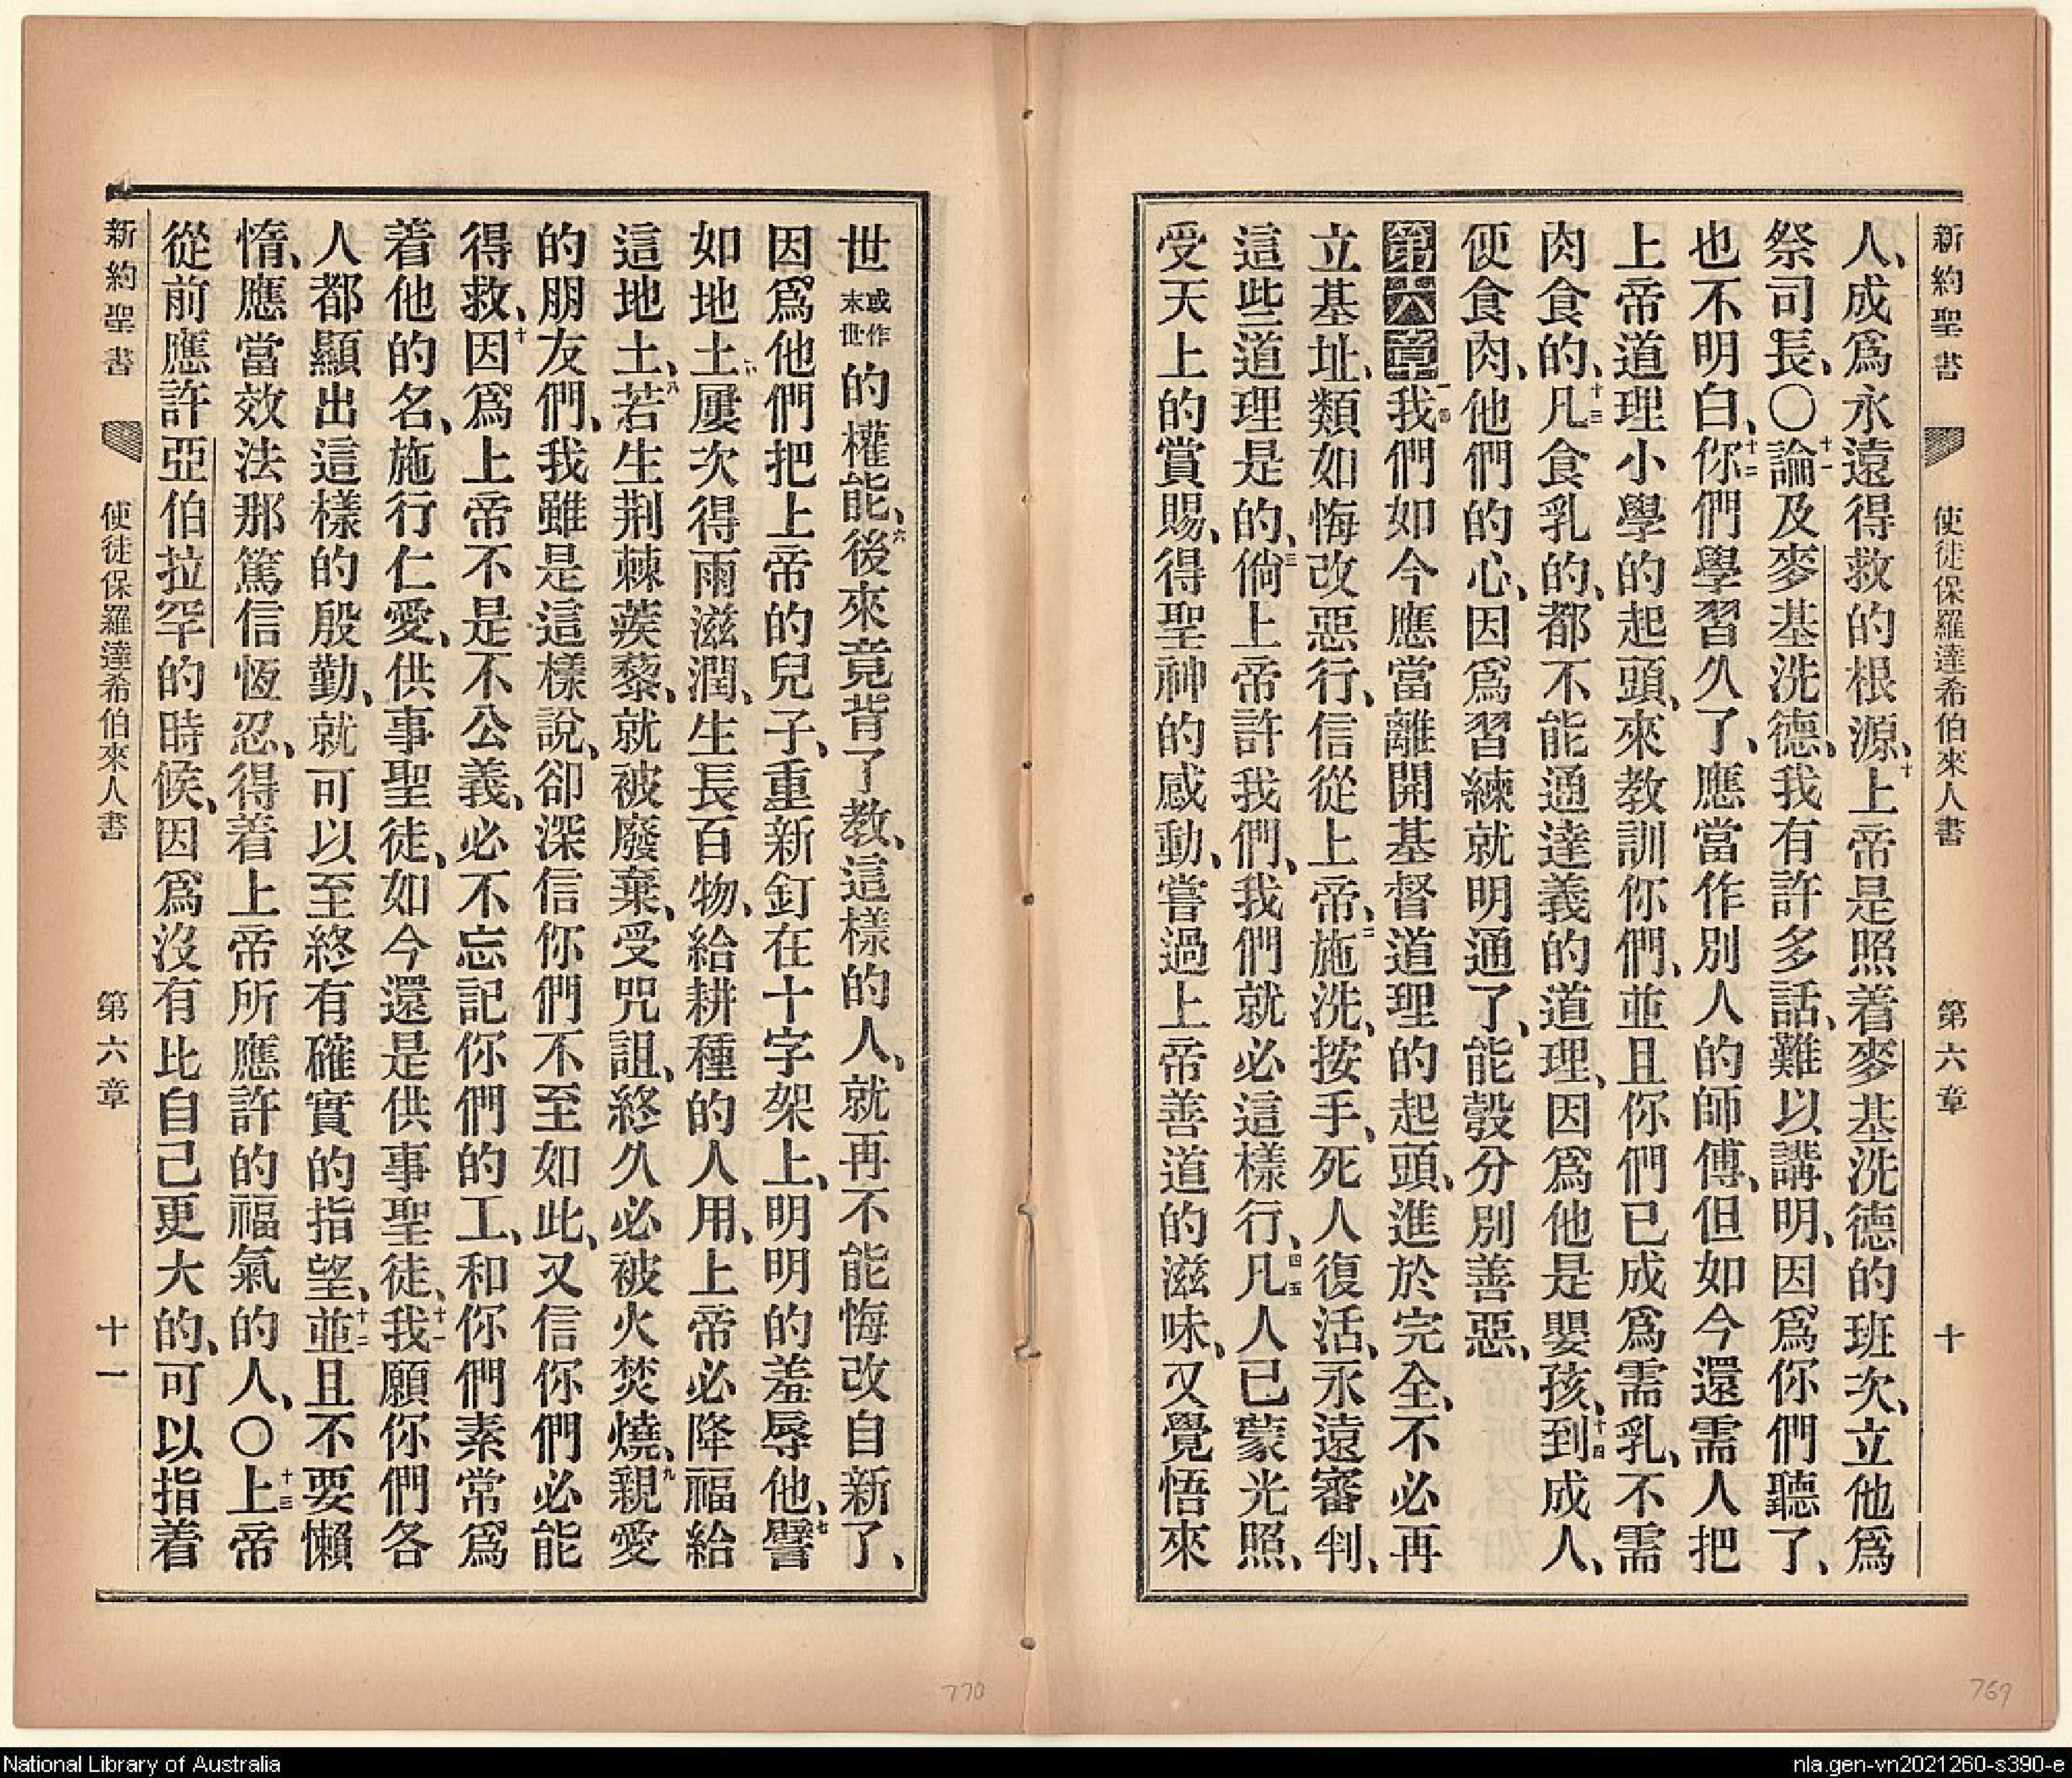 新約聖書 使徒保羅達希伯來人書 第六章 十
人、成爲永遠得救的根源、十上帝是照着麥基洗德的班次、立他爲
祭司長、〇十一論及麥基洗德、我有許多話、難以講明、因爲你們聽了、
也不明白、十二你們學習久了、應當作別人的師傅、但如今還需人把
上帝道理小學的起頭、來教訓你們、並且你們已成爲需乳、不需
肉食的、十三凡食乳的、都不能通達義的道理、因爲他是嬰孩、十四到成人、
便食肉、他們的心、因爲習練就明通了、能彀分別善惡、
第六章一我們如今應當離開基督道理的起頭、進於完全、不必再
立基址、類如悔改惡行、信從上帝、二施洗、按手、死人復活、永遠審判、
這些道理是的、三倘上帝許我們、我們就必這樣行、四五凡人已蒙光照、
受天上的賞賜、得聖神的感動、嘗過上帝善道的滋味、又覺悟來
世或作末世的權能、六後來竟背了教、這樣的人、就再不能悔改自新了、
因爲他們把上帝的兒子、重新釘在十字架上、明明的羞辱他、七譬
如地土、屢次得雨滋潤、生長百物、給耕種的人用、上帝必降福給
這地土、八若生荆棘蒺藜、就被廢棄、受咒詛、終久必被火焚燒、九親愛
的朋友們、我雖是這樣說、卻深信你們不至如此、又信你們必能
得救、十因爲上帝不是不公義、必不忘記你們的工、和你們素常爲
着他的名、施行仁愛、供事聖徒、如今還是供事聖徒、十一我願你們各
人都顯出這樣的殷勤、就可以至終有確實的指望、十二並且不要懶
惰、應當效法那篤信恆忍、得着上帝所應許的福氣的人、〇十三上帝
從前應許亞伯拉罕的時候、因爲沒有比自己更大的、可以指着
新約聖書 使徒保羅達希伯來人書 第六章 十一
770
769
National Library of Australia
nla.gen-vn2021260-s390-e